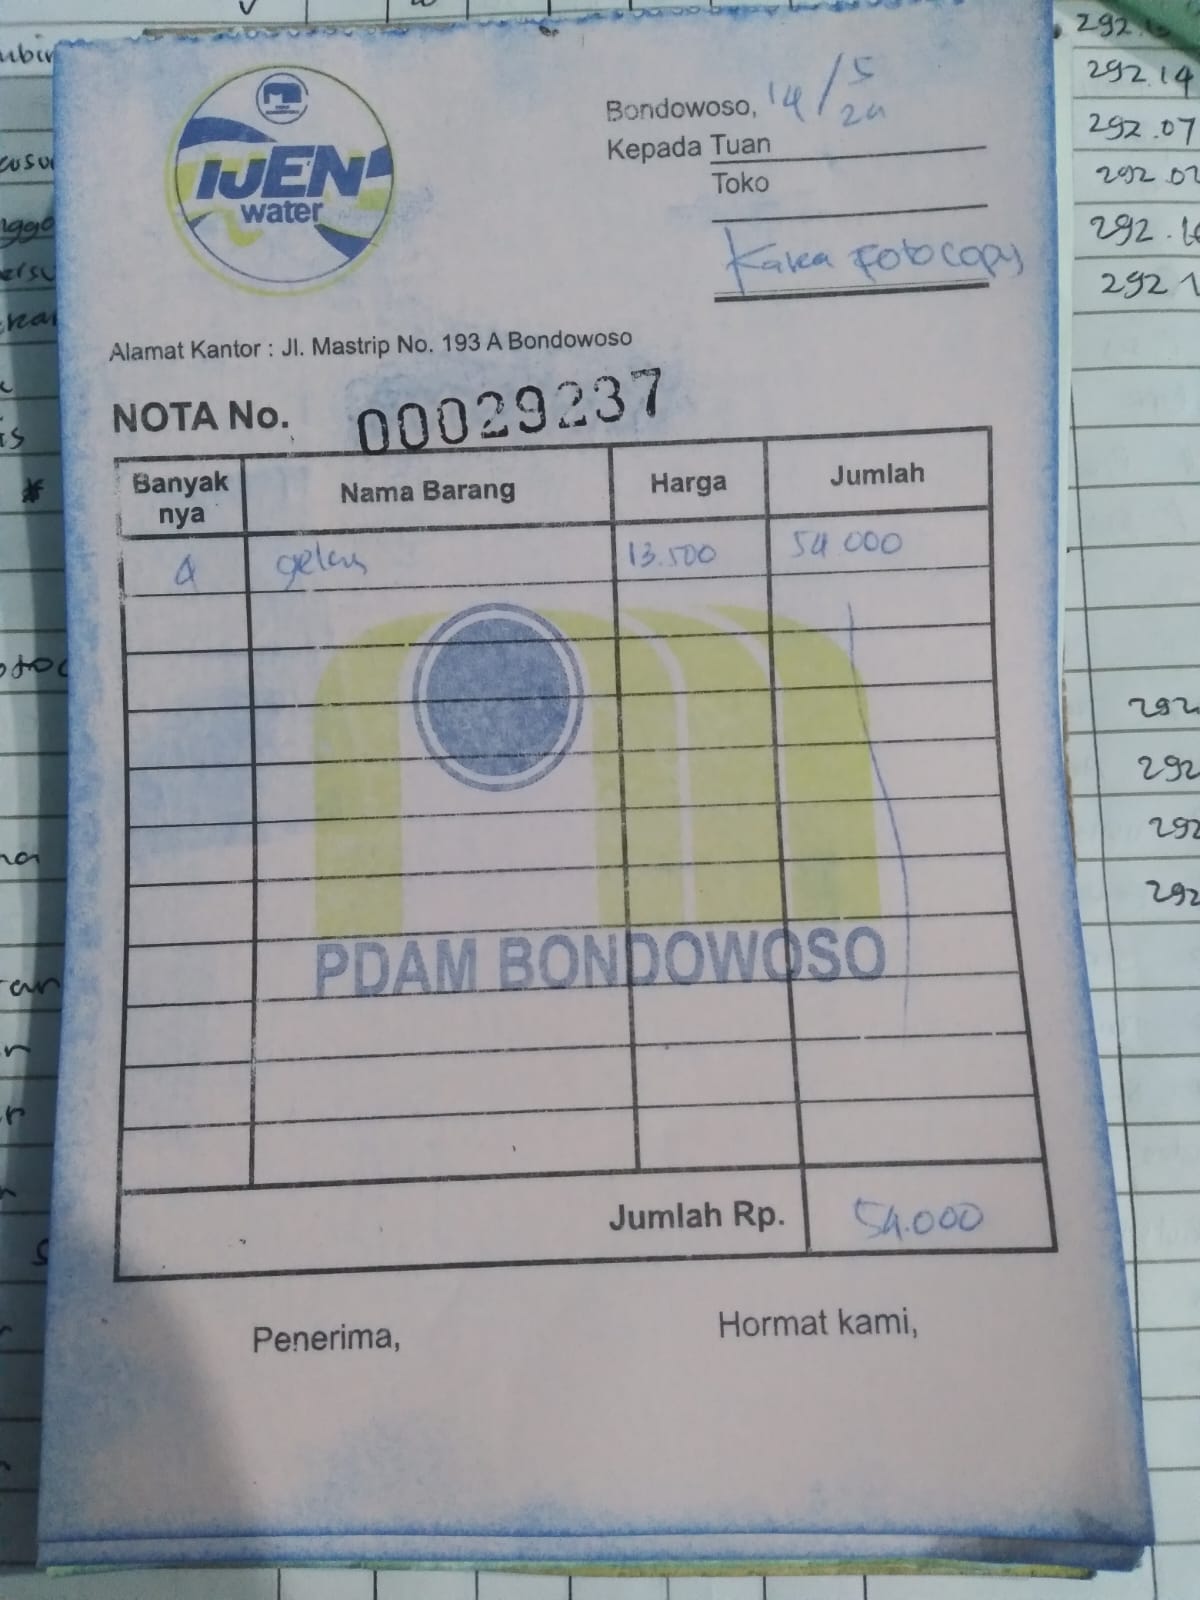 IJEN
water
Bondowoso, 14/5 24
Kepada Tuan
Toko
Kaka Fotocopy
Alamat Kantor : Jl. Mastrip No. 193 A Bondowoso
NOTA No. 00029237
Banyak nya Nama Barang Harga Jumlah
4 gelas 13.500 54.000
PDAM BONDOWOSO
Jumlah Rp. 54.000
Penerima, Hormat kami,
292.14
292.07
292.02
292
292
292
292
292